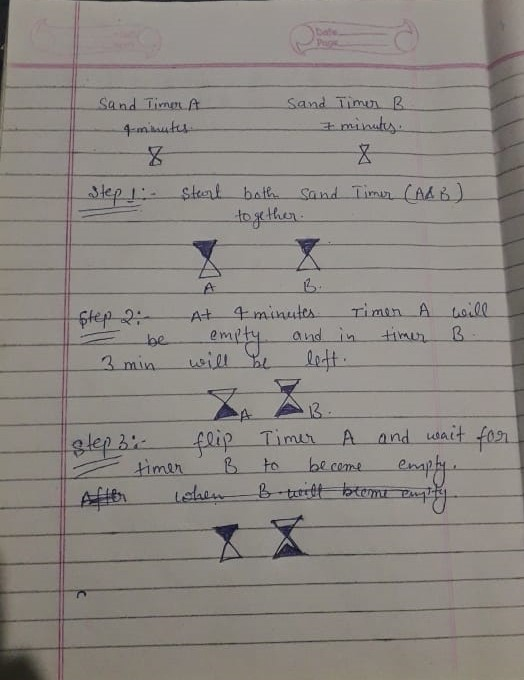 Date
Page
Sand Timer A
4 minutes.
Sand Timer B
7 minutes.
Step 1:- Start both Sand Timer (A&B)
together.
A
B.
Step 2:- At 4 minutes Timer A will
be empty and in timer B
3 min will be left.
A
B.
Step 3:- flip Timer A and wait for
timer B to become empty.
After when B will become empty.